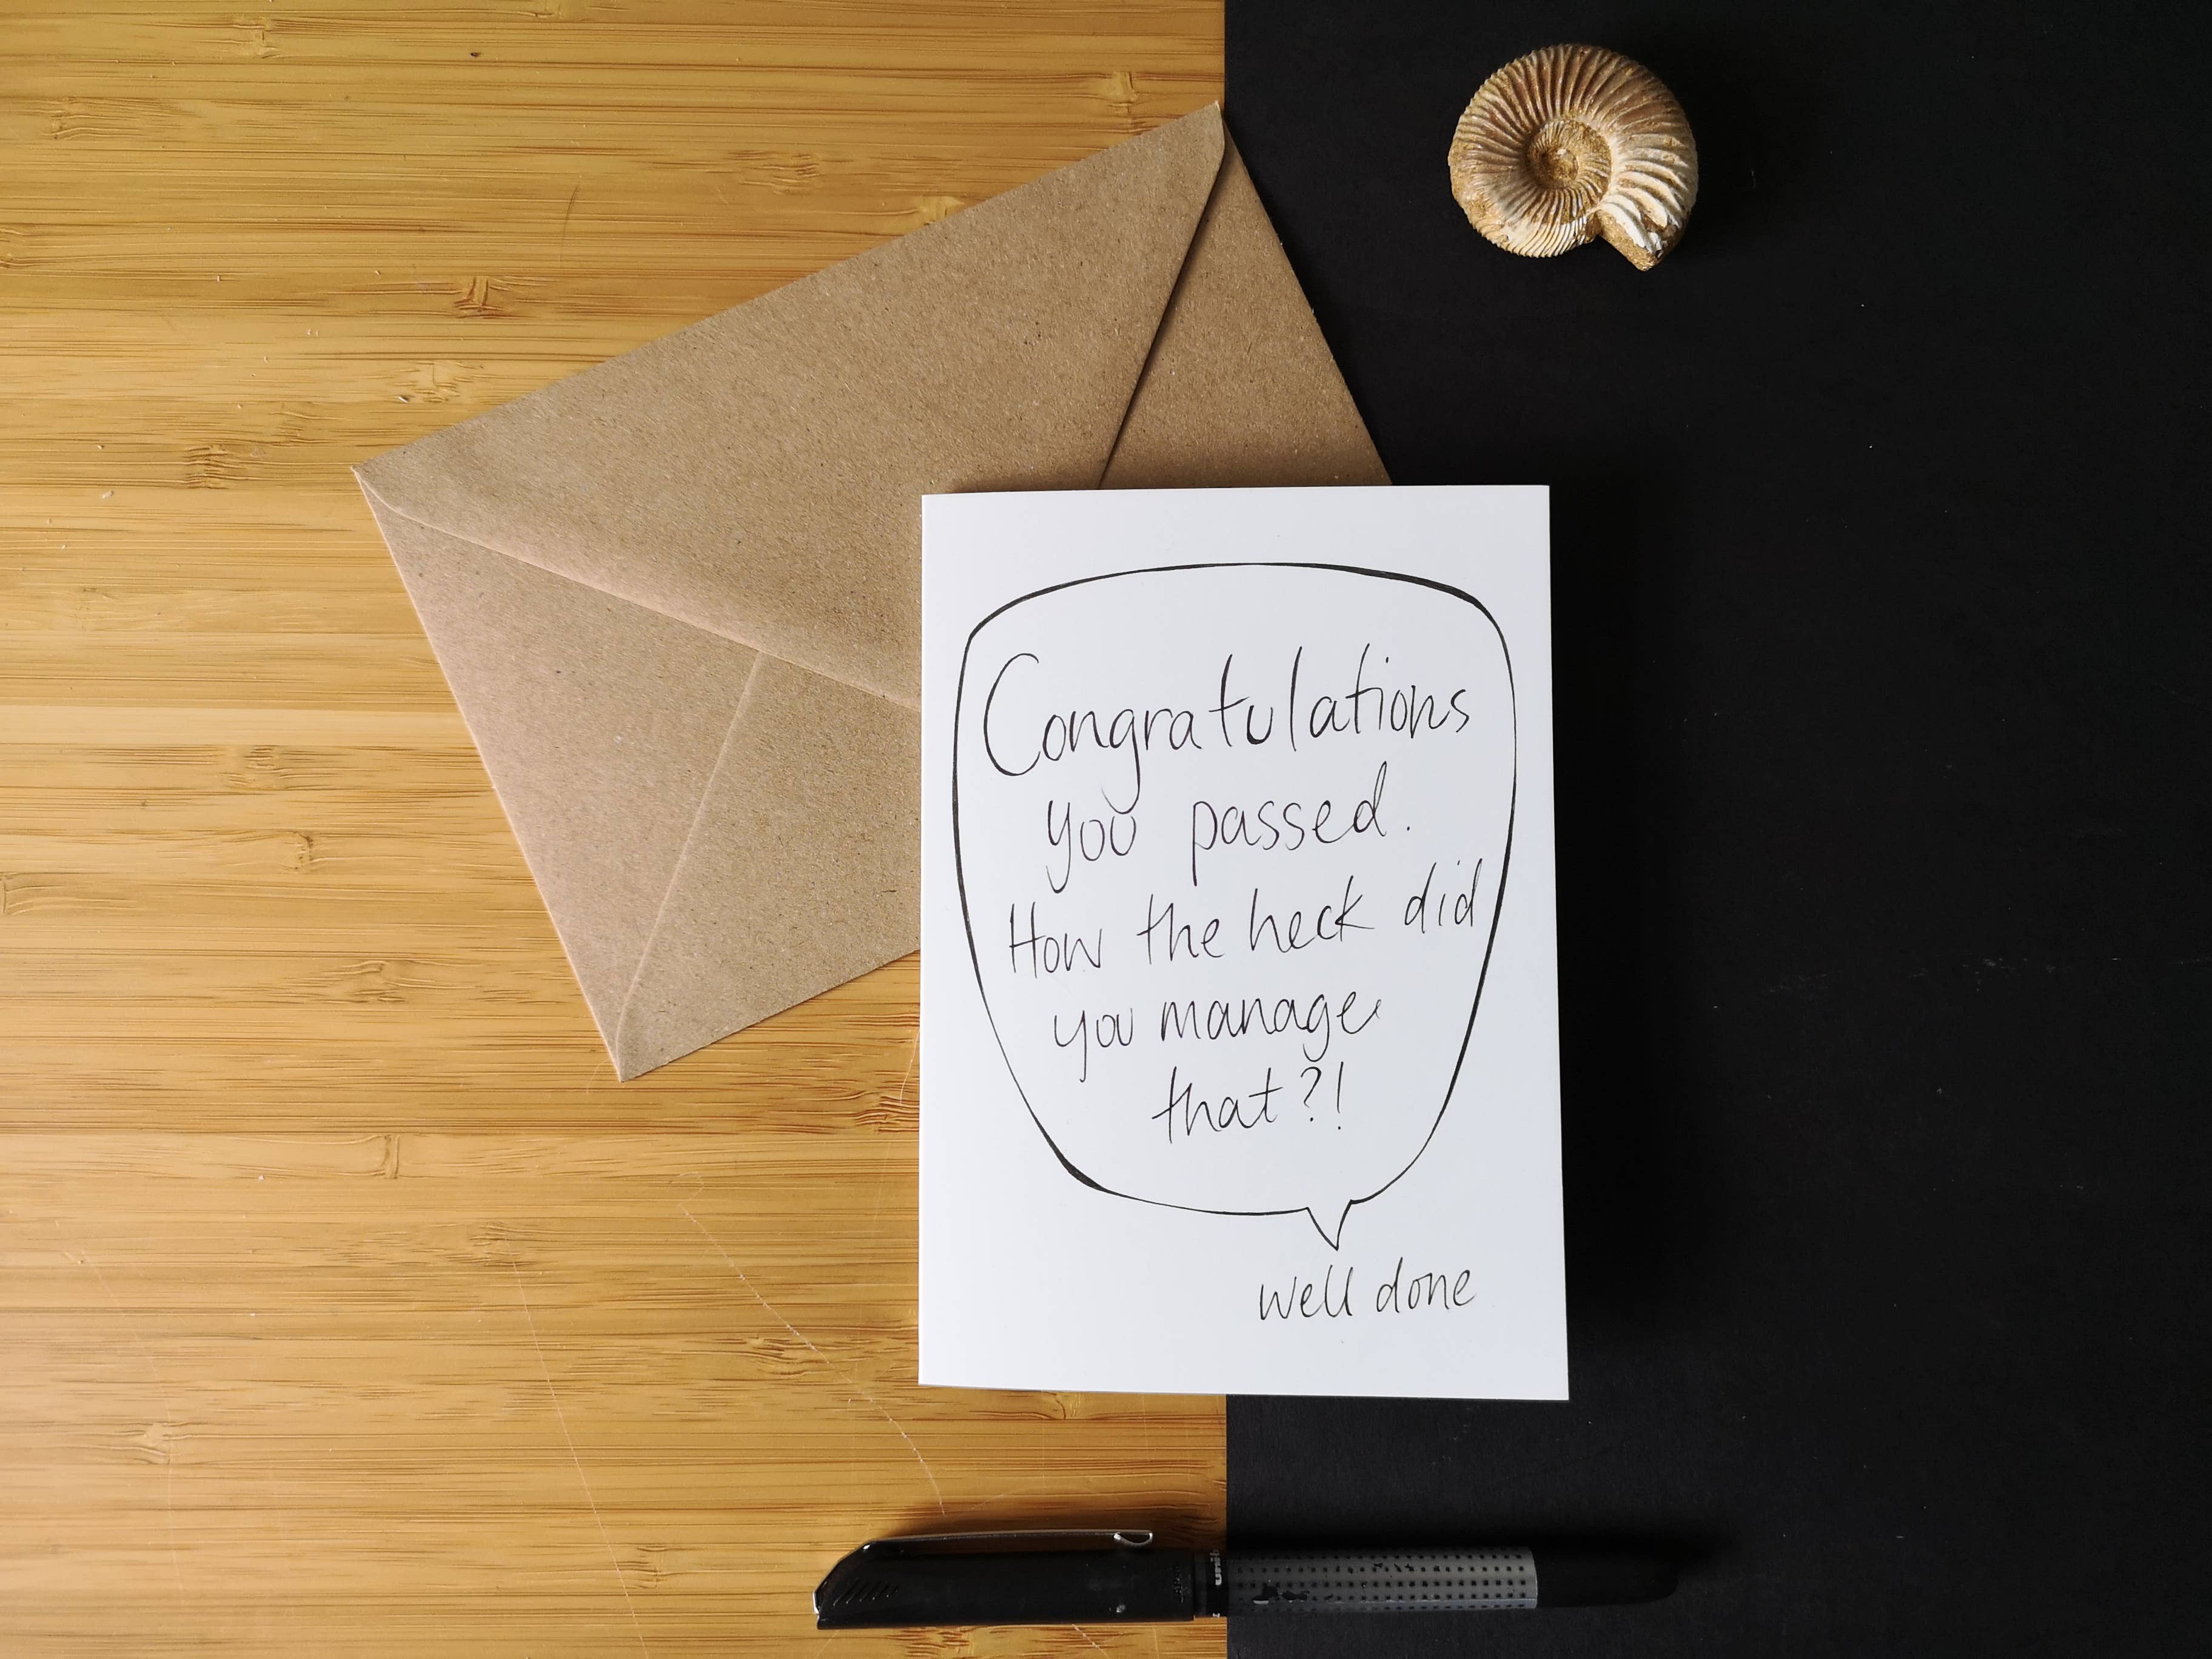 Congratulations
you passed.
How the heck did
you manage
that?!
well done